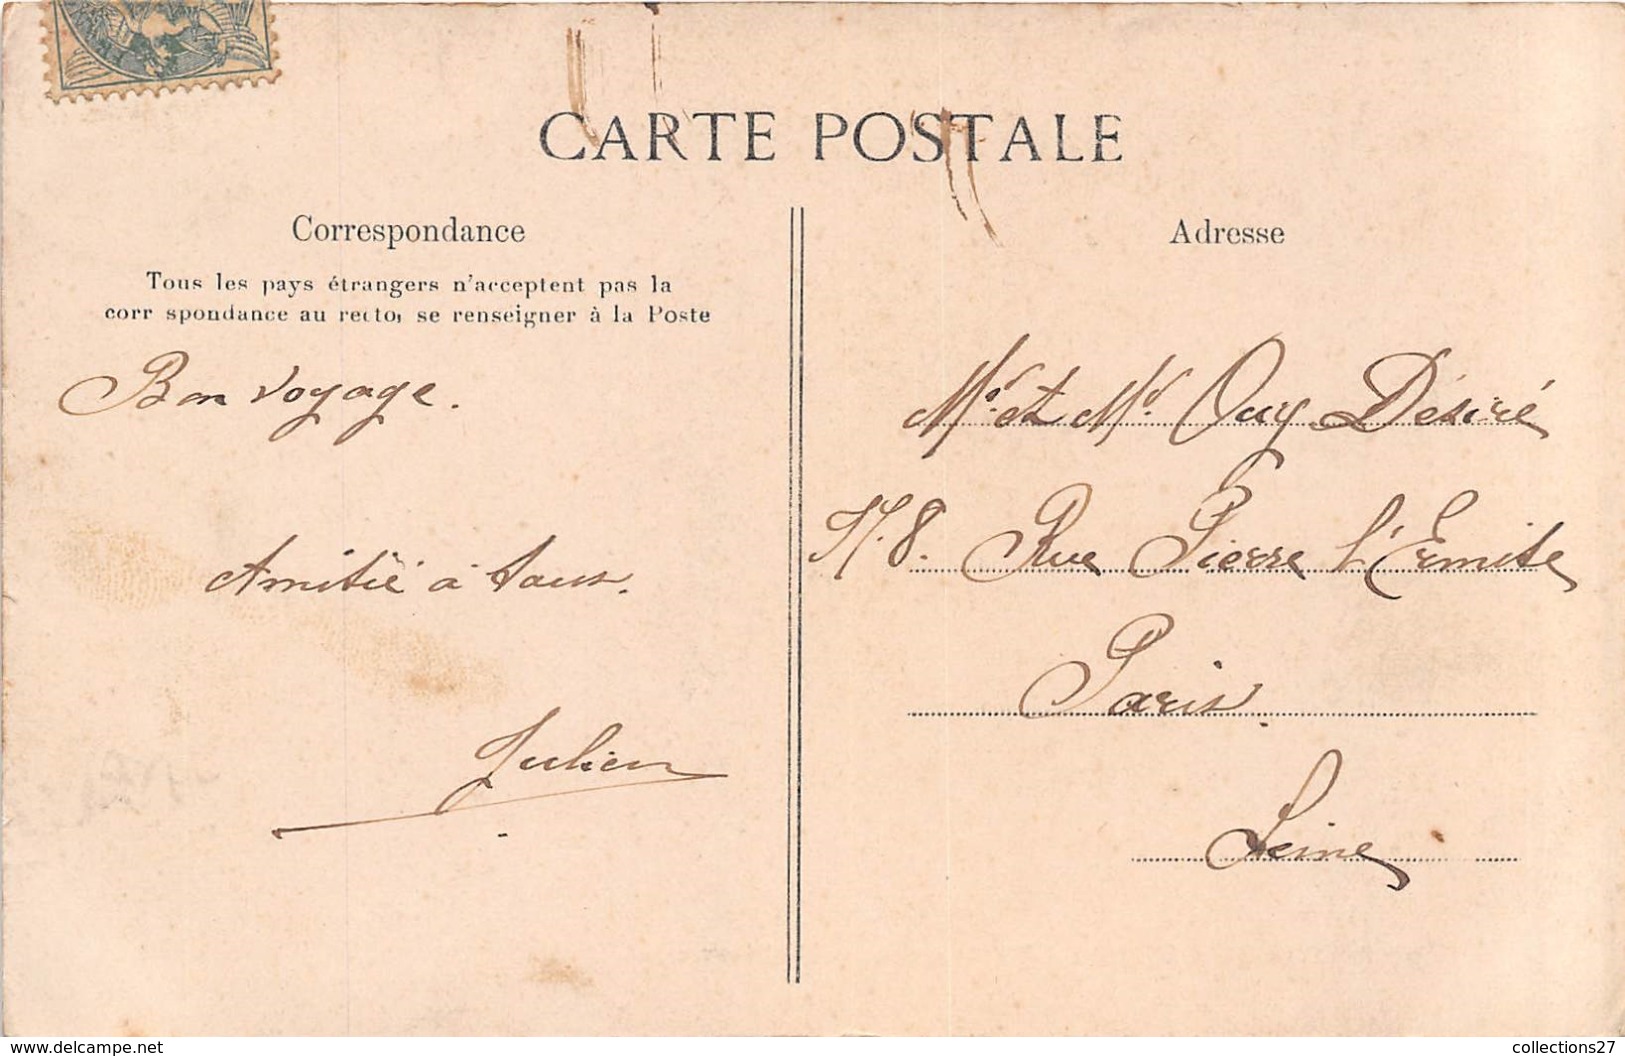 CARTE POSTALE
Correspondance
Tous les pays étrangers n'acceptent pas la
corr spondance au recto, se renseigner à la Poste
Bon voyage.
Amitié à tous.
Julien
Adresse
Mr et Md Ouy Désiré
N. 8. Rue Pierre l'Ermite
Paris.
Seine
www.delcampe.net
collections27